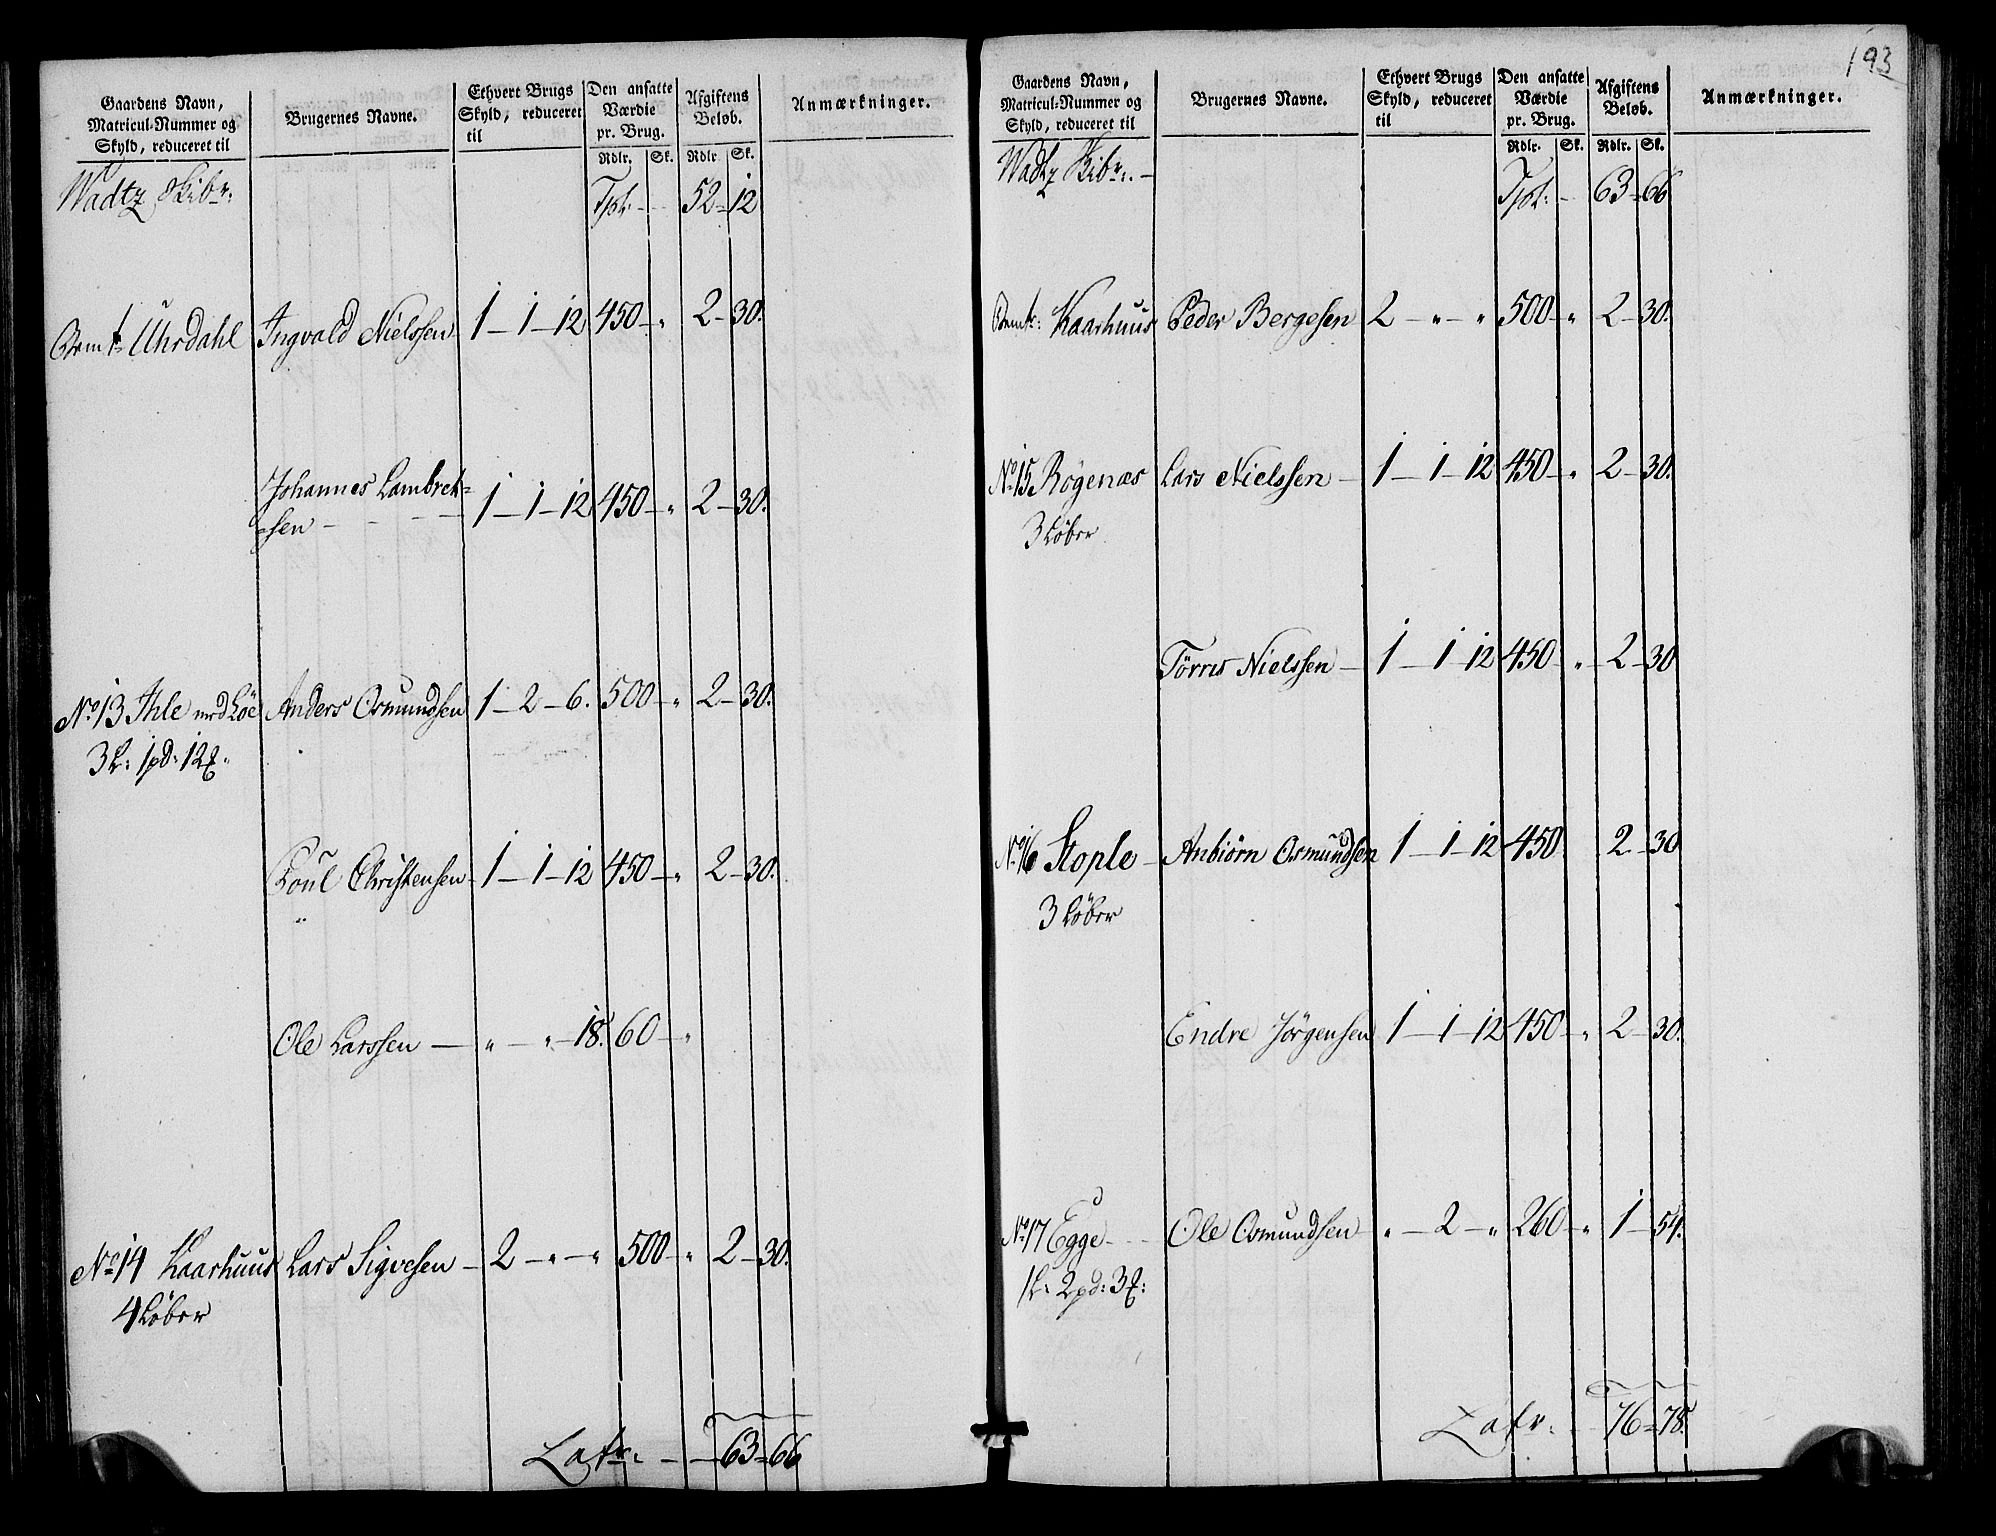 Gaardens Navn,
Matricul-Nummer og
Skyld, reduceret til
Brugernes Navne.
Ethvert Brugs
Skyld, reduceret
til
Den ansatte
Værdie
pr. Brug.
Rdlr. Sk.
Afgiftens
Beløb.
Rdlr Sk.
Anmærkninger.
Wadtz Skibr: Tspt: 52-12
Bemte Uhrdahl Ingvald Nielssen 1-1-12 450-" 2-30.
Johannes Lambret=
sen 1-1-12 450-" 2-30.
No 13 Ihle med Løe Anders Osmundsen 1-2-6. 500-" 2-30.
3 L: 1 pd: 12 
Poul Christensen 1-1-12 450-" 2-30.
Ole Larssen - "-"-18. 60-"
No 14 Kaarhuus Lars Sigvesen - 2-"-" 500-" 2-30.
4 Løber
Latr: 63-66
193
Gaardens Navn,
Matricul-Nummer og
Skyld, reduceret til
Brugernes Navne.
Ethvert Brugs
Skyld, reduceret
til
Den ansatte
Værdie
pr. Brug.
Rdlr. Sk.
Afgiftens
Beløb.
Rdlr. Sk.
Anmærkninger.
Wadtz Skibr: Tspt: 63-66
Bemte: Kaarhuus Peder Bergesen 2-"-" 500-" 2-30.
No 15 Røgenæs Lars Nielssen 1-1-12 450-" 2-30.
3 Løber
Tørres Nielssen 1-1-12 450-" 2-30
No 16 Stople Anbiørn Osmundsen 1-1-12 450 2-30
3 Løber
Endre Jørgensen 1-1-12 450-" 2-30.
No 17 Egge Ole Osmundsen "-2-" 260-" 1-54.
1 L: 2 pd: 3 
Latr: 76-78.